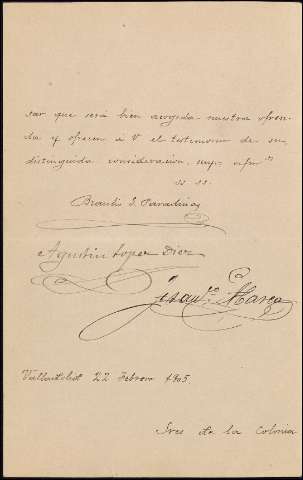 rar que será bien acogida nuestra ofren-
da y ofrecen á V el testimonio de su
distinguida consideración. suyo afmos
ss ss.
Braulio S.
Agustin Lopez Diez
Marca
Valladolid 22 Febrero 1905
Sres de la Colonia